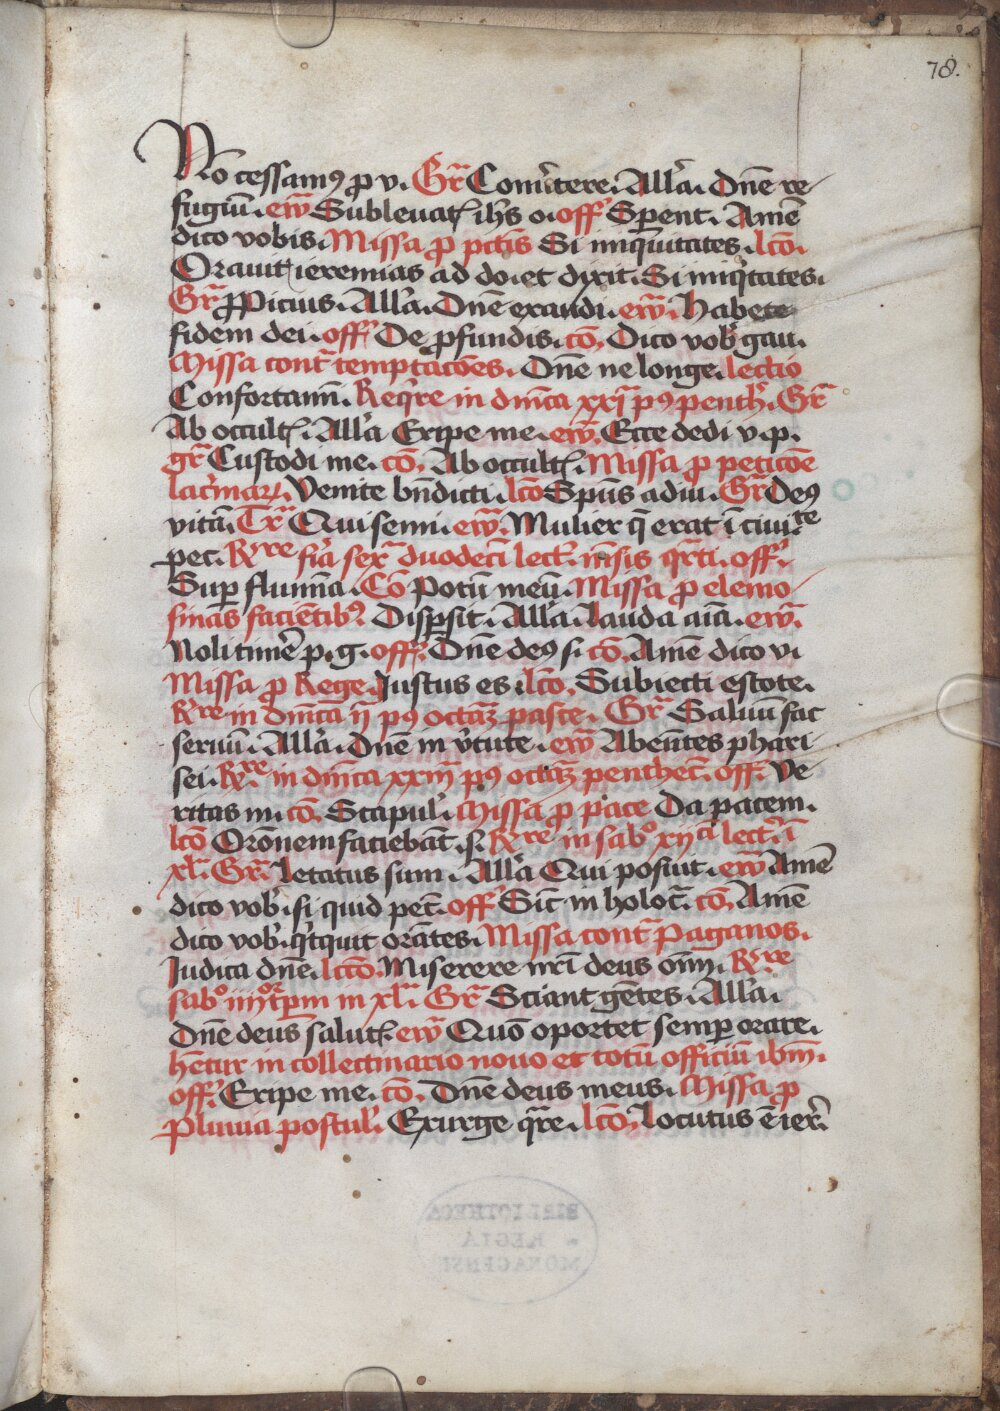 78.
No cessamꝰ ꝓ v. Gr̄ Conũtere. Allã. Dñe re
fugiũ. ew̃ Subleuatꝭ ih̃s o. off̃ Sperent. Amẽ
dico vobis. Missa ꝓ pctĩs Si iniquitates. lcõ.
Orauit ieremias ad do. et dixit. Si iniq̃tates.
Gr̄ Ꝓpicius. Allã. Dñe exaudi. ew̃. Habete
fidem dei. off̃ De ꝓfundis. cõ, Dico vob̃ gau.
Missa contᷓ temptacões. Dñe ne longe. lectio
Confortamĩ. Req̃re in dñica xxj pꝰ penth̃. Gr̄
Ab occultꝭ. Allã Eripe me. ew̃. Ecce dedi v. p.
gr̄ Custodi me. cõ, Ab occultꝭ. Missa ꝓ peticõe
lac̃maꝝ. Venite bñdicti. lcõ Spũs adiu. Gr̄ Deꝰ
vitã. Tr̄ Qui semi. ew̃. Mulier q̃ erat ĩ ciuite
pec. Rr̃re fiã sexᷓ duodecĩ lect. mẽsis qr̃ti. off̃.
Suꝑ flumĩa. Cõ Potũ meũ. Missa ꝓ elemo
sinas faciẽtibꝰ. Disꝑsit. Allã. Lauda aiã. ew̃.
Noli timẽ p. g. off̃. Dñe deꝰ s. cõ, Amẽ dico vi
Missa ꝓ Rege. Justus es. lcõ, Subiecti estote.
Rr̃re in dñica ij pꝰ octaꝫ pasce. Gr̄ Saluũ fac
seruũ. Allã. Dñe in v̓tute. ew̃ Abeũtes phari
sei. Rr̃re in dñica xxiij pꝰ octaꝫ penthec̃. off̃. Ve
ritas m. cõ. Scapul̃. Missa ꝓ pace Da pacem.
lcõ Orõnem faciebãt. s. Rr̃re in sabo xijci lect. ĩ
xl̃. Gr̄. Letatus sum. Allã Qui posuit. ew̃ Amẽ
dico vob̃. si quid pec̃. off̃ Sic̃ in holoc̃. cõ, Amẽ
dico vob̃. q̃tquit orãtes. Missa contᷓ Paganos.
Iudica dñe. lcõ. Miserere nr̃i deus oĩm. Rr̃re
sabo iiijor tꝑm in xl̃. Gr̄ Sciant gẽtes. Allã.
Dñe deus salutꝭ. ew̃ Quõ oportet semꝑ orare.
hẽtur in collectinario nouo et totũ officiũ ibm̃.
off̃. Eripe me. cõ. Dñe deus meus. Missa ꝓ
Pluuia postul̃. Exurge qr̃e. lcõ, Locutus ẽ ier̃.
BIBLIOTHECA
REGIA
MONACENSIS